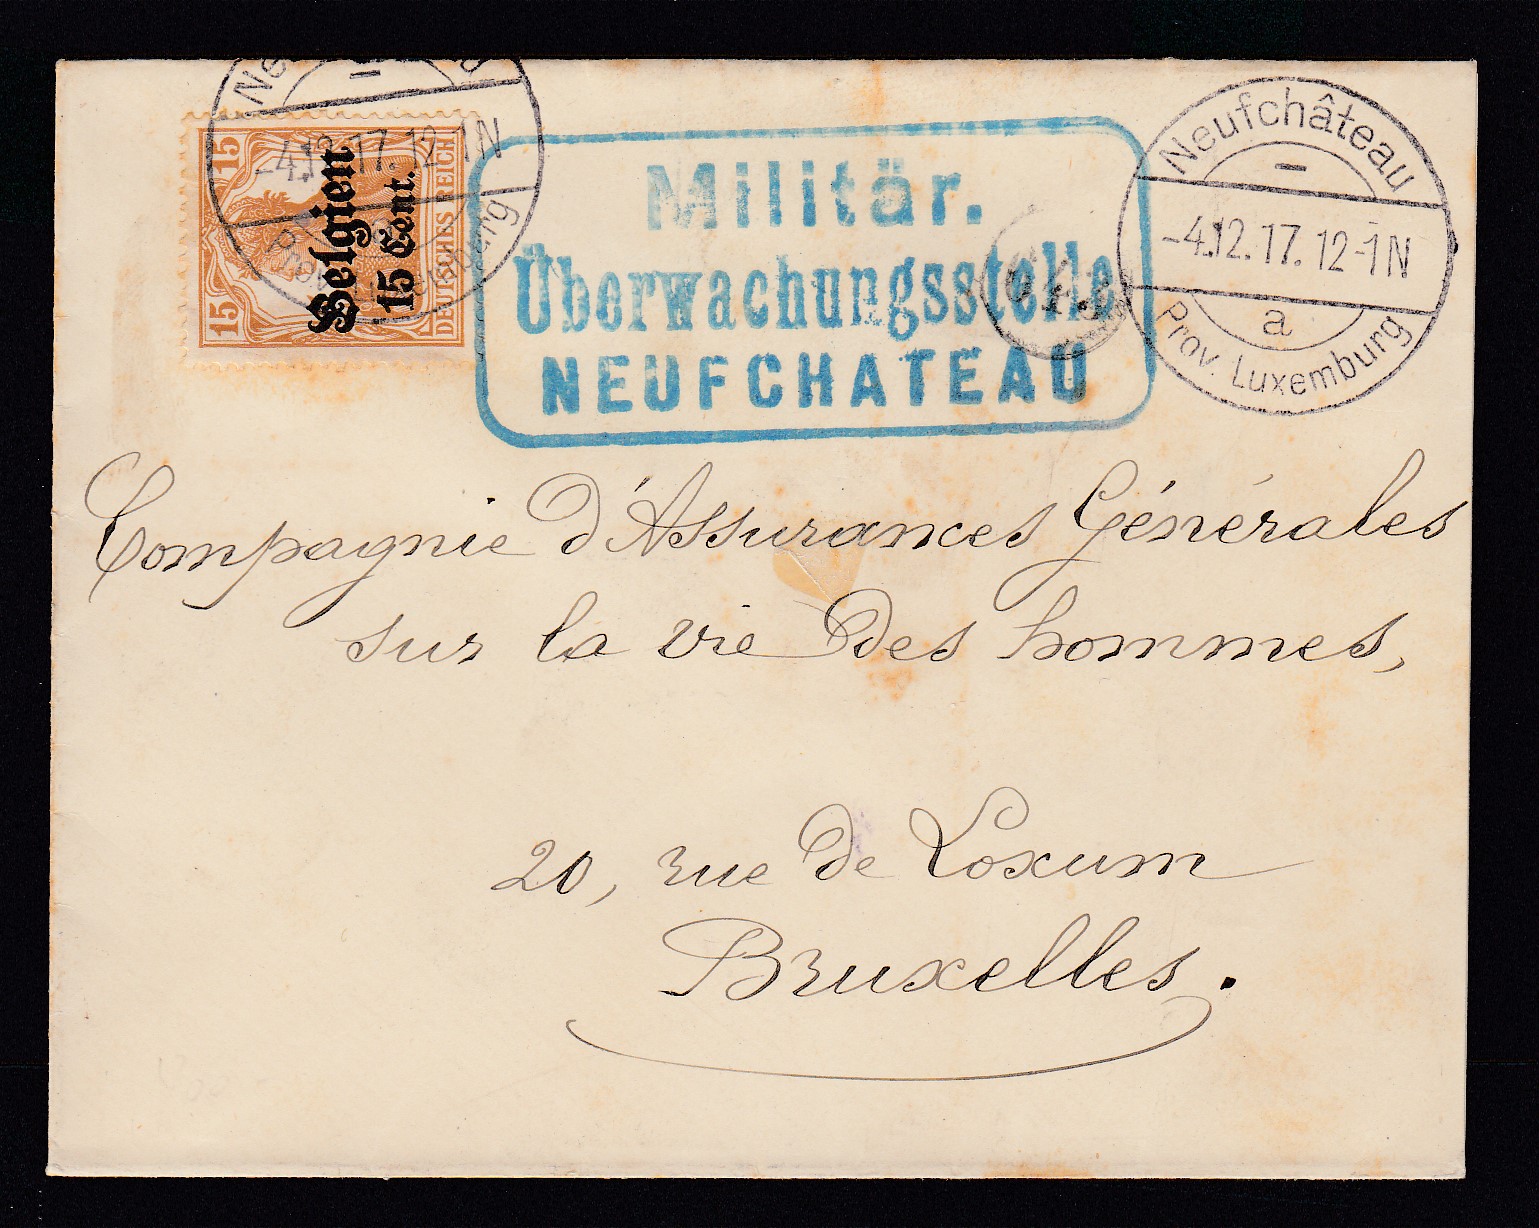 15
15
Belgien
15 Cent.
DEUTSCHES REICH
-4.12.17.12-1N
Militär.
Überwachungsstelle
NEUFCHATEAU
Neufchâteau
-4.12.17. 12-1N
a
Prov. Luxemburg
Compagnie d'Assurances Générales
sur la vie des hommes,
20, rue de Loxum
Bruxelles.